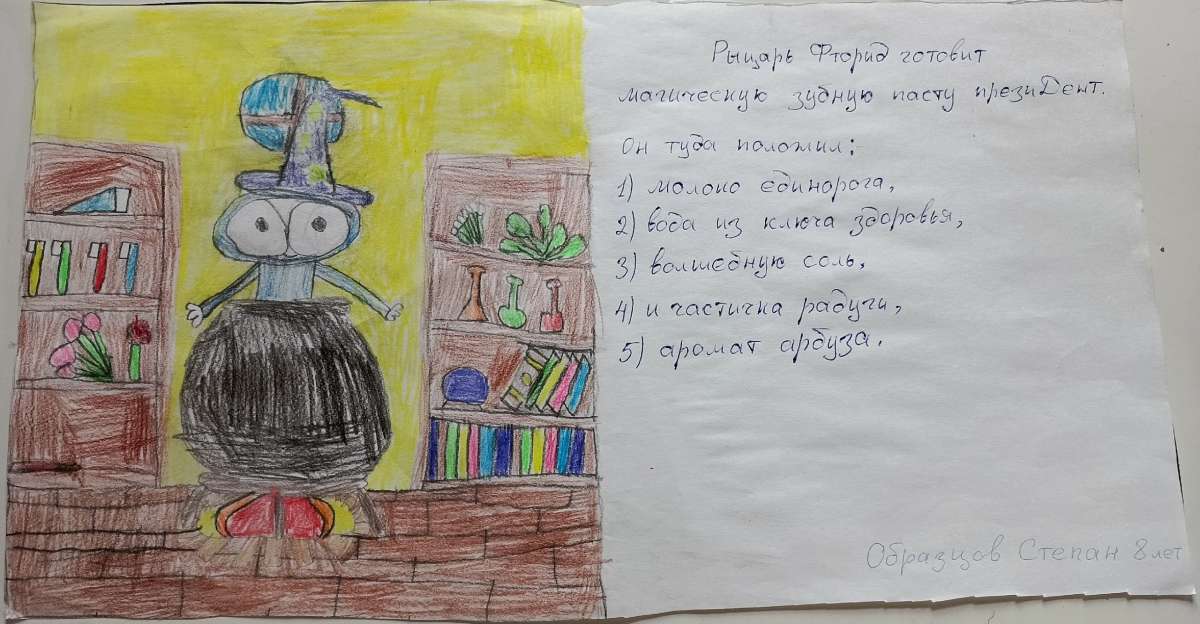 Рыцарь Фторид готовит
магическую зубную пасту презиDент.
Он туда положил:
1) молоко единорога,
2) вода из ключа здоровья,
3) волшебную соль,
4) и частичка радуги,
5) аромат арбуза.
Образцов Степан 8 лет